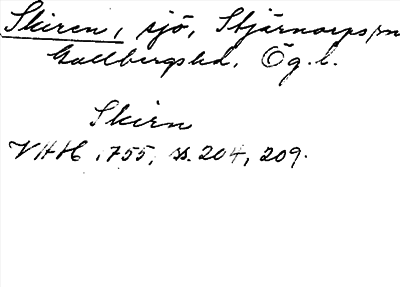 Skiren, sjö, Stjärnorps sn
Gullbergs hd. Ög. l.
Skirn
VHH 1755, ss. 204, 209.